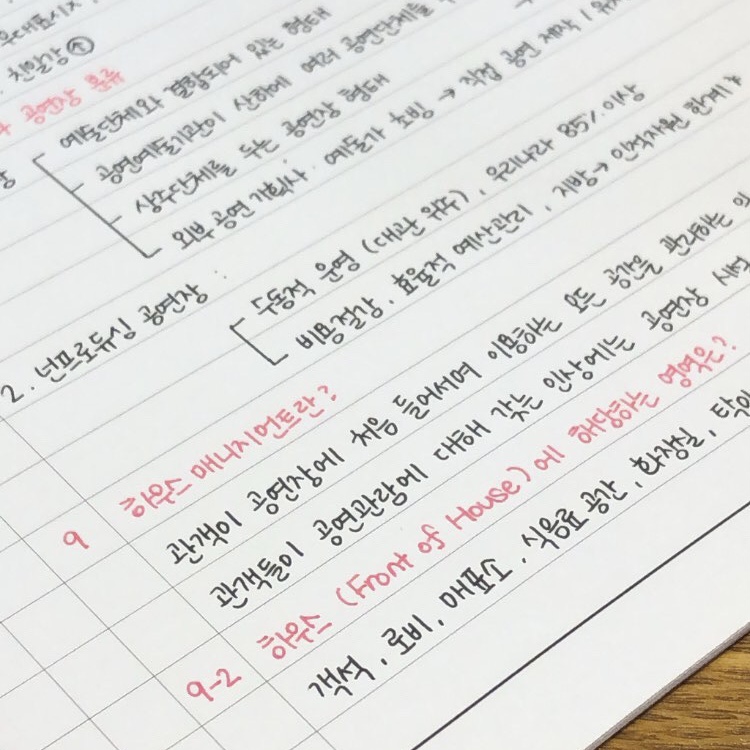 우대표시지,
친밀감 ↑
공연장 분류
예술단체와 결합되어 있는 형태
공연예술기관이 산하에 여러 공연단체를
상주단체를 두는 공연장 형태
외부 공연 기획사 · 예술가 초빙 → 직접 공연 제작 | 유치
2. 넌프로듀싱 공연장 :
수동적 운영 (대관 위주), 우리나라 85% 이상
비용절감, 효율적 예산관리, 지방→ 인적자원 한계
9 하우스 매니지먼트란?
관객이 공연장에 처음 들어서며 이용하는 모든 공간을 관리하는
관객들이 공연관람에 대해 갖는 인상에는 공연장 시설
9-2 하우스 (Front of House) 에 해당하는 영역은?
객석, 로비, 매표소, 식음료 공간, 화장실, 탁아